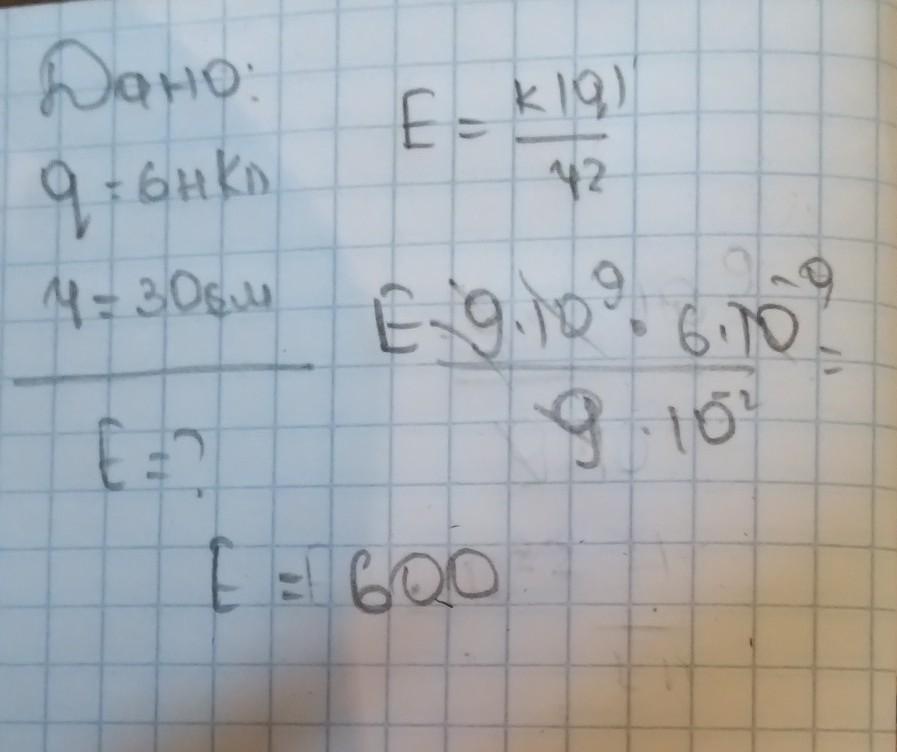 Дано:
q = 6нКл
r = 30см
E = ?
E = k|q| / r²
E = 9·10⁹ · 6·10⁻⁹ / 9·10⁻² =
E = 600